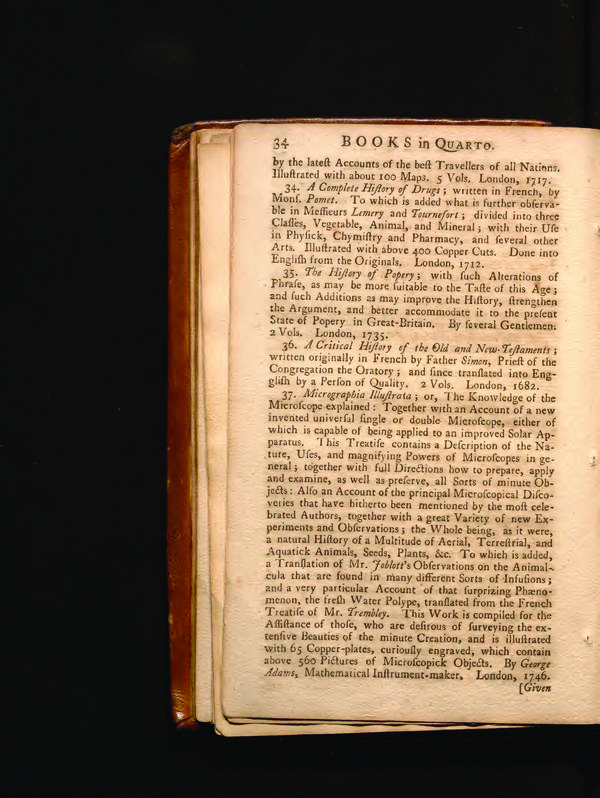 34 BOOKS in QUARTO.
by the lateſt Accounts of the beſt Travellers of all Nations.
Illuſtrated with about 100 Maps. 5 Vols. London, 1717.
34. A Complete Hiſtory of Drugs; written in French, by
Monſ. Pomet. To which is added what is further obſerva-
ble in Meſſieurs Lemery and Tournefort; divided into three
Claſſes, Vegetable, Animal, and Mineral; with their Uſe
in Phyſick, Chymiſtry and Pharmacy, and ſeveral other
Arts. Illuſtrated with above 400 Copper Cuts. Done into
Engliſh from the Originals. London, 1712.
35. The Hiſtory of Popery; with ſuch Alterations of
Phraſe, as may be more ſuitable to the Taſte of this Age;
and ſuch Additions as may improve the Hiſtory, ſtrengthen
the Argument, and better accommodate it to the preſent
State of Popery in Great-Britain. By ſeveral Gentlemen.
2 Vols. London, 1735.
36. A Critical Hiſtory of the Old and New-Teſtaments;
written originally in French by Father Simon, Prieſt of the
Congregation the Oratory; and ſince tranſlated into Eng-
gliſh by a Perſon of Quality. 2 Vols. London, 1682.
37. Micrographia Illuſtrata; or, The Knowledge of the
Microſcope explained: Together with an Account of a new
invented univerſal ſingle or double Microſcope, either of
which is capable of being applied to an improved Solar Ap-
paratus. This Treatiſe contains a Deſcription of the Na-
ture, Uſes, and magnifying Powers of Microſcopes in ge-
neral; together with full Directions how to prepare, apply
and examine, as well as preſerve, all Sorts of minute Ob-
jects: Alſo an Account of the principal Microſcopical Diſco-
veries that have hitherto been mentioned by the moſt cele-
brated Authors, together with a great Variety of new Ex-
periments and Obſervations; the Whole being, as it were,
a natural Hiſtory of a Multitude of Aerial, Terreſtrial, and
Aquatick Animals, Seeds, Plants, &c. To which is added,
a Tranſlation of Mr. Joblott's Obſervations on the Animal-
cula that are found in many different Sorts of Infuſions;
and a very particular Account of that ſurprizing Phæno-
menon, the freſh Water Polype, tranſlated from the French
Treatiſe of Mr. Trembley. This Work is compiled for the
Aſſiſtance of thoſe, who are deſirous of ſurveying the ex-
tenſive Beauties of the minute Creation, and is illuſtrated
with 65 Copper-plates, curiouſly engraved, which contain
above 560 Pictures of Microſcopick Objects. By George
Adams, Mathematical Inſtrument-maker. London, 1746.
[Given